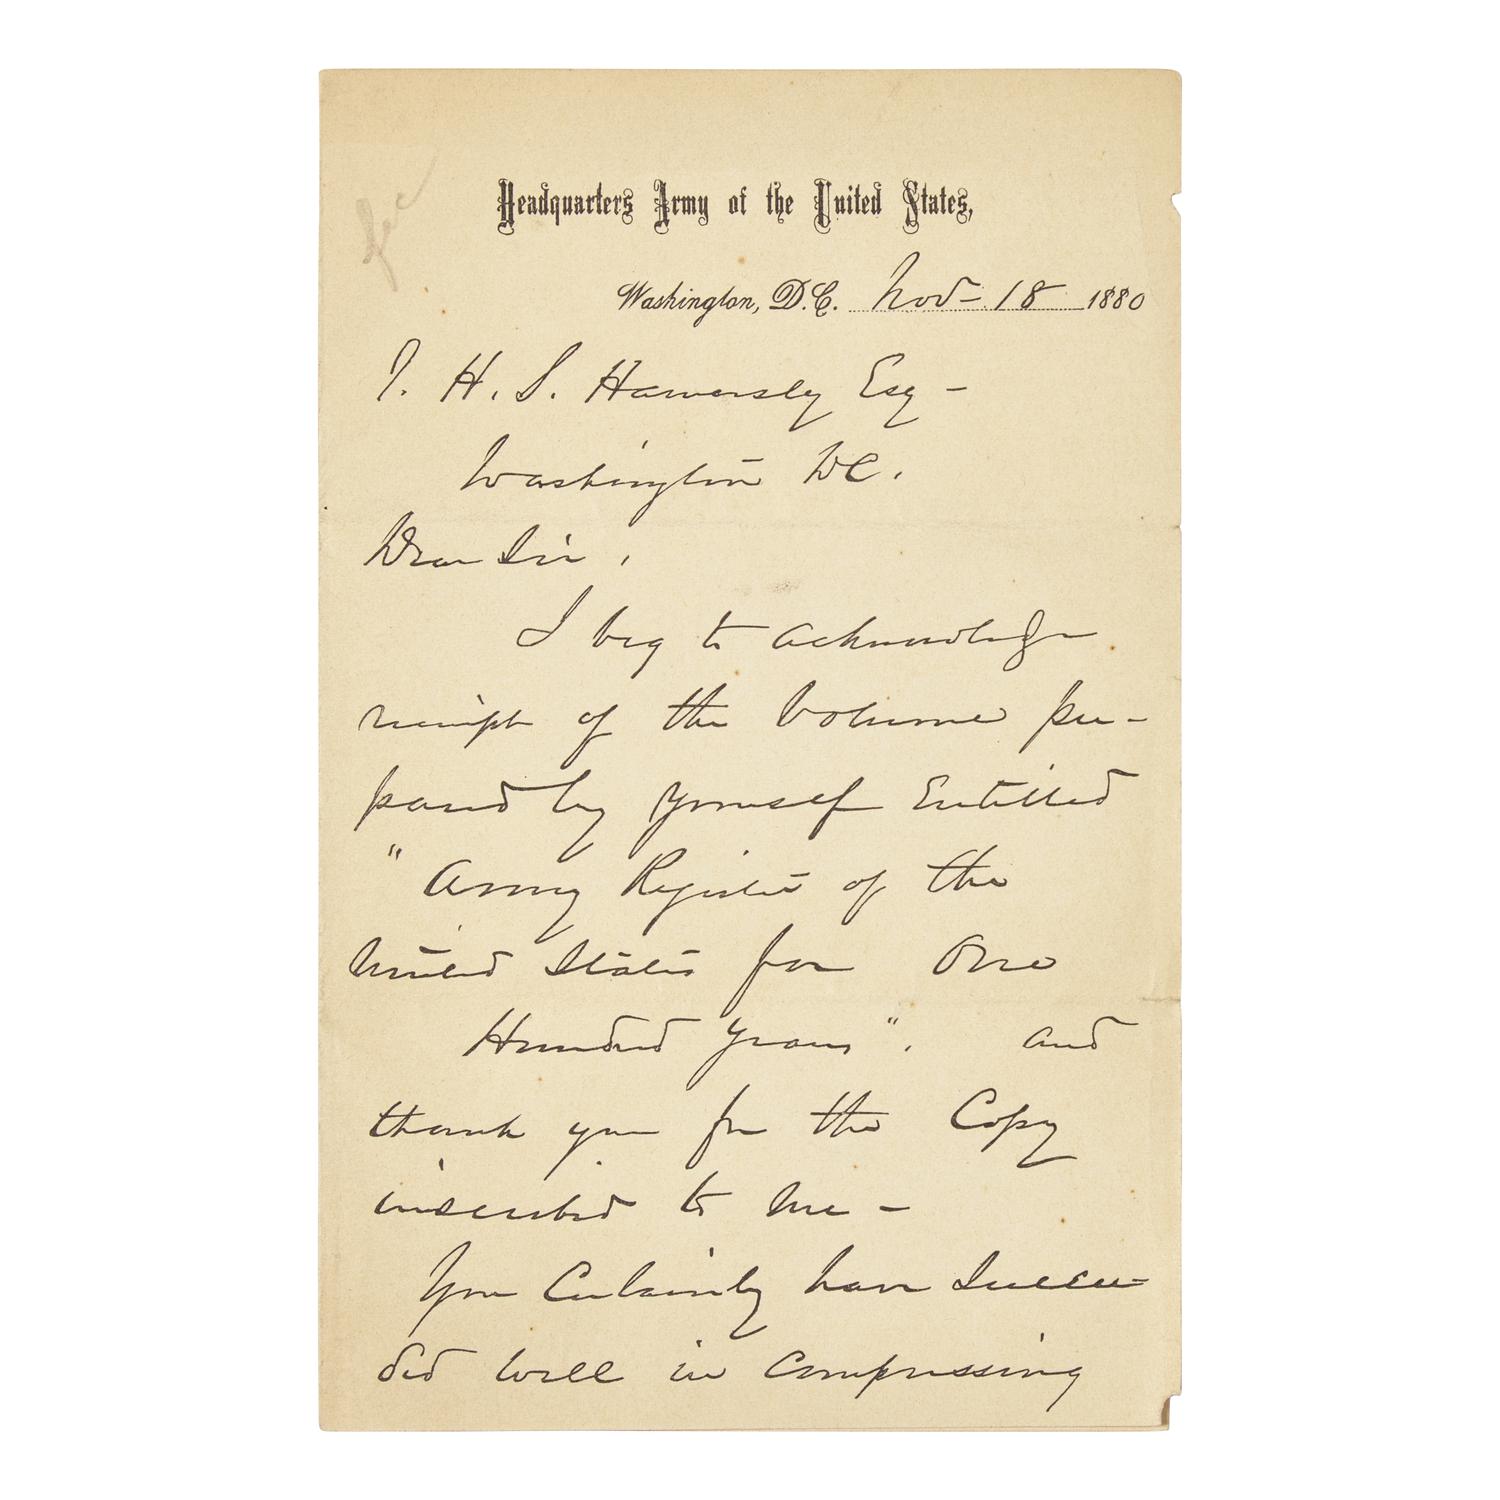 Headquarters Army of the United States,
Washington, D.C. Nov- 18 1880
T. H. S. Hamersly Esq -
Washington DC.
Dear Sir,
I beg to acknowledge
receipt of the Volume pre-
pared by yourself Entitled
"Army Register of the
United States for One
Hundred Years". and
thank you for the Copy
inscribed to me -
You Certainly have Succee-
ded well in compressing